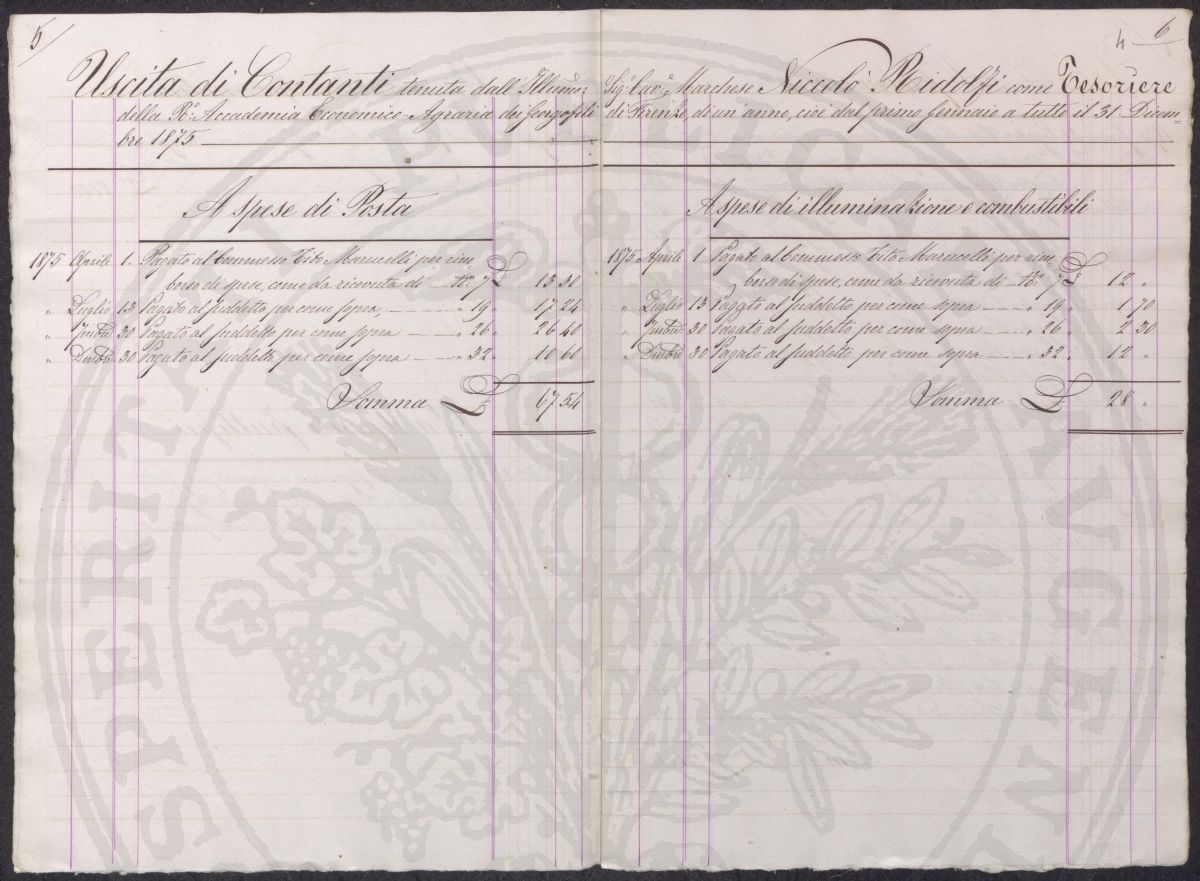 5
4 6
Uscita di Contanti tenuta dall'Illmo: Sigr. Cavr. Marchese Niccolò Ridolfi come Tesoriere
della Ra: Accademia Economico-Agraria dei Georgofili di Firenze, di un'anno, cioè dal primo Gennaio a tutto il 31 Dicem=
bre 1875
A spese di Posta
1875 Aprile 1. Pagato al Commesso Tito Marucelli per rim
borso di spese, come da ricevuta di No. 7 £ 13 30
" Luglio 13 Pagato al suddetto per come sopra " 19 " 17 24
" 30 Pagato al suddetto per come sopra " 26 " 26 40
" 30 Pagato al suddetto per come sopra " 32 " 10 60
Somma £ 67 54
A spese di illuminazione e combustibili
1875 Aprile 1 Pagato al Commesso Tito Marucelli per rim
borso di spese, come da ricevuta di No. 7 £ 12 "
" Luglio 13 Pagato al suddetto per come sopra " 19 " 1 70
" 30 Pagato al suddetto per come sopra " 26 " 2 30
" 30 Pagato al suddetto per come sopra " 32 " 12 "
Somma £ 28 "
PROSPERITATI PUBLICAE AUGENDAE